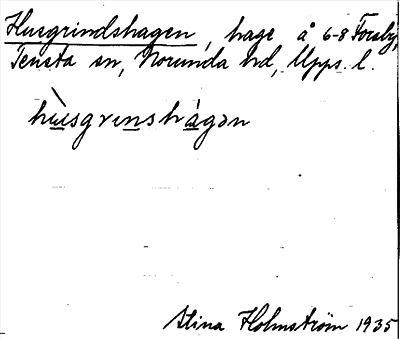 Husgrindshagen, hage å 6-8 Forsby,
Tensta sn, Norunda hd, Upps. l.
hùsgrinshágən
Stina Holmström 1935